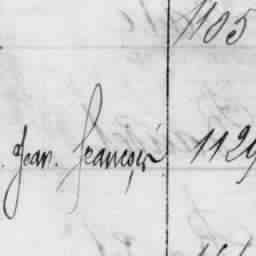 1105
Jean. François 1129